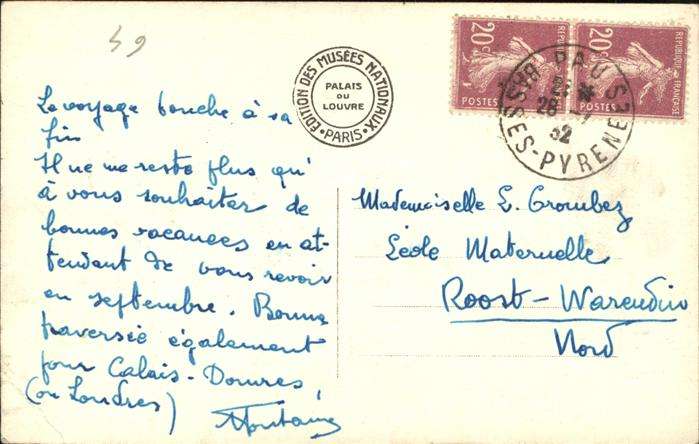 49
Le voyage touche à sa
fin
Il ne me reste plus qu'
à vous souhaiter de
bonnes vacances en at-
tendant de vous revoir
en septembre. Bonne
traversée également
pour Calais-Douvres
(ou Londres)
ÉDITION DES MUSÉES NATIONAUX
PALAIS
DU
LOUVRE
PARIS
20c REPUBLIQUE FRANÇAISE
POSTES
20c REPUBLIQUE FRANÇAISE
POSTES
PAU
BSSES-PYRENEES
28
32
Mademoiselle L. Crombez
École Maternelle
Roost-Warendin
Nord